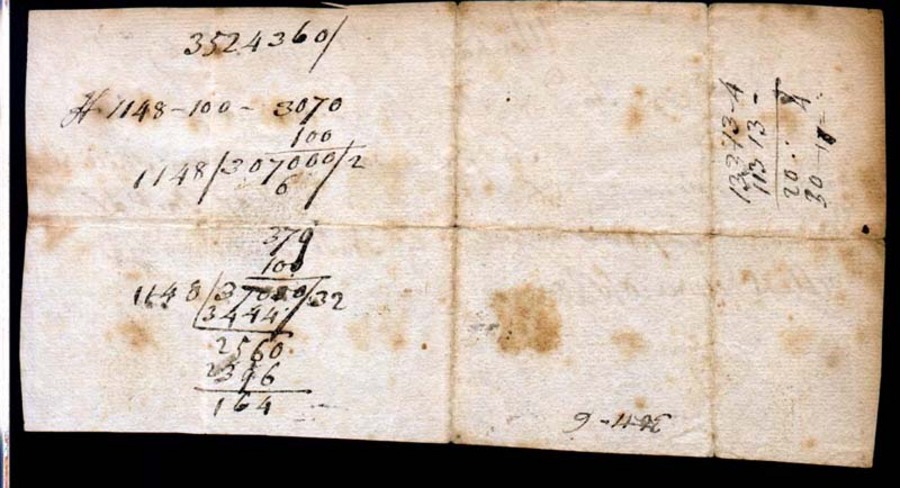 3524360/
If 1148-100- 3070
100
1148/307000/2
6
370
100
1148/37000/32
3444
2560
2396
164
133+13-4
113 13 -
20 · 8
30-18-4